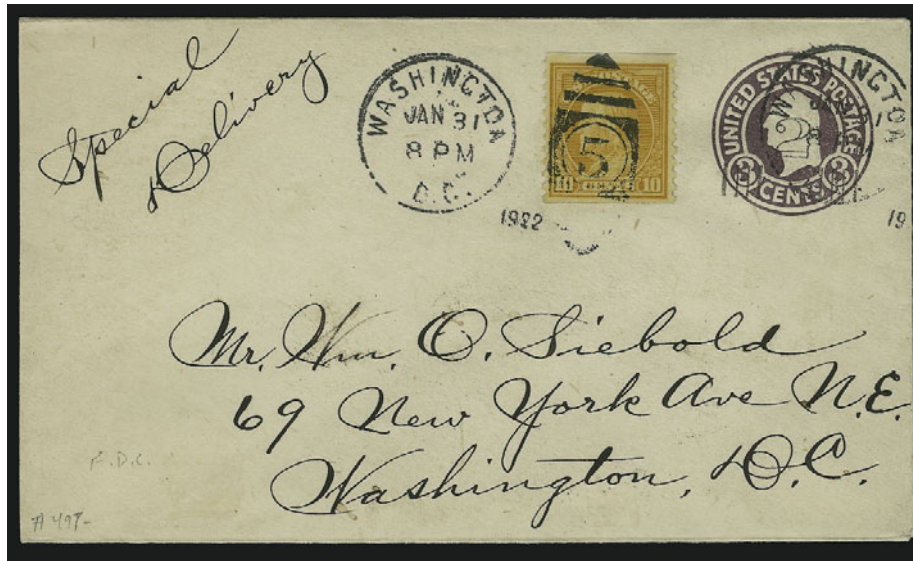 Special
Delivery
WASHINGTON
JAN 31
8 PM
D.C.
1922
5
10 CENTS 10
UNITED STATES POSTAGE
3 CENTS 3
WASHINGTON
2
19
Mr. Wm. O. Siebold
69 New York Ave N.E.
Washington, D.C.
F.D.C.